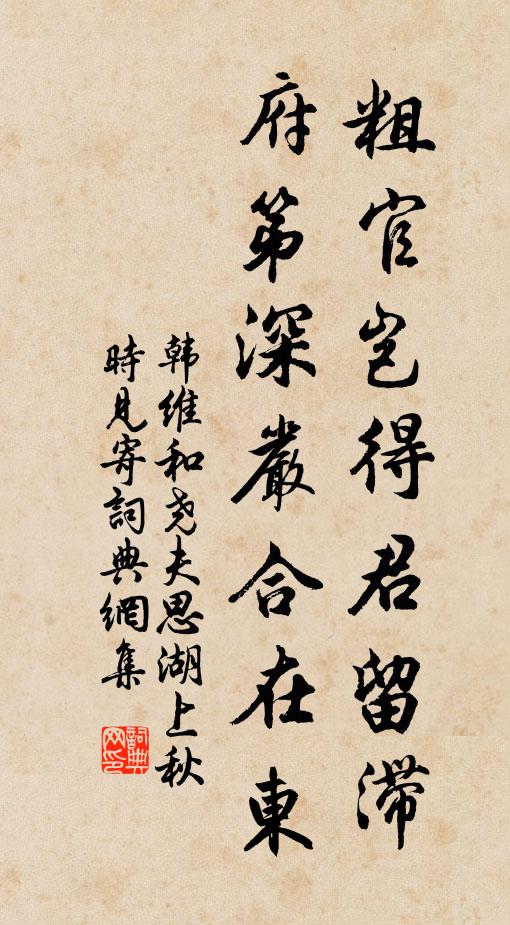 粗官岂得君留滞
府第深嚴合在東
韩维和尧夫思湖上秋
時見寄詞典網集
詞典网印